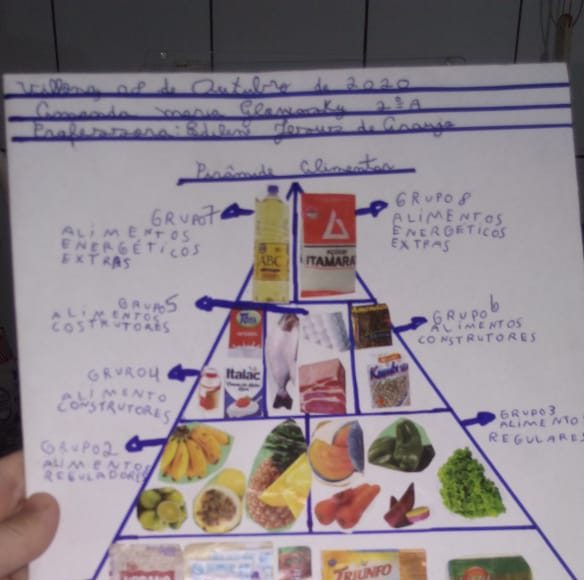 08 de Outubro de 2020
Amanda maria 2ªA
Professora: Edileni Jesus de Araujo
Pirâmide Alimentar
GRUPO7
ALIMENTOS
ENERGÉTICOS
EXTRAS
GRUPO8
ALIMENTOS
ENERGÉTICOS
EXTRAS
ABC
AÇÚCAR
ITAMARA
GRUPO5
ALIMENTOS
COSTRUTORES
GRUPO6
ALIMENTOS
CONSTRUTORES
GRUPO4
ALIMENTO
CONSTRUTORES
Italac
Kumbuca
GRUPO2
ALIMENTOS
REGULADORES
GRUPO3
ALIMENTO
REGULARES
TRIUNFO